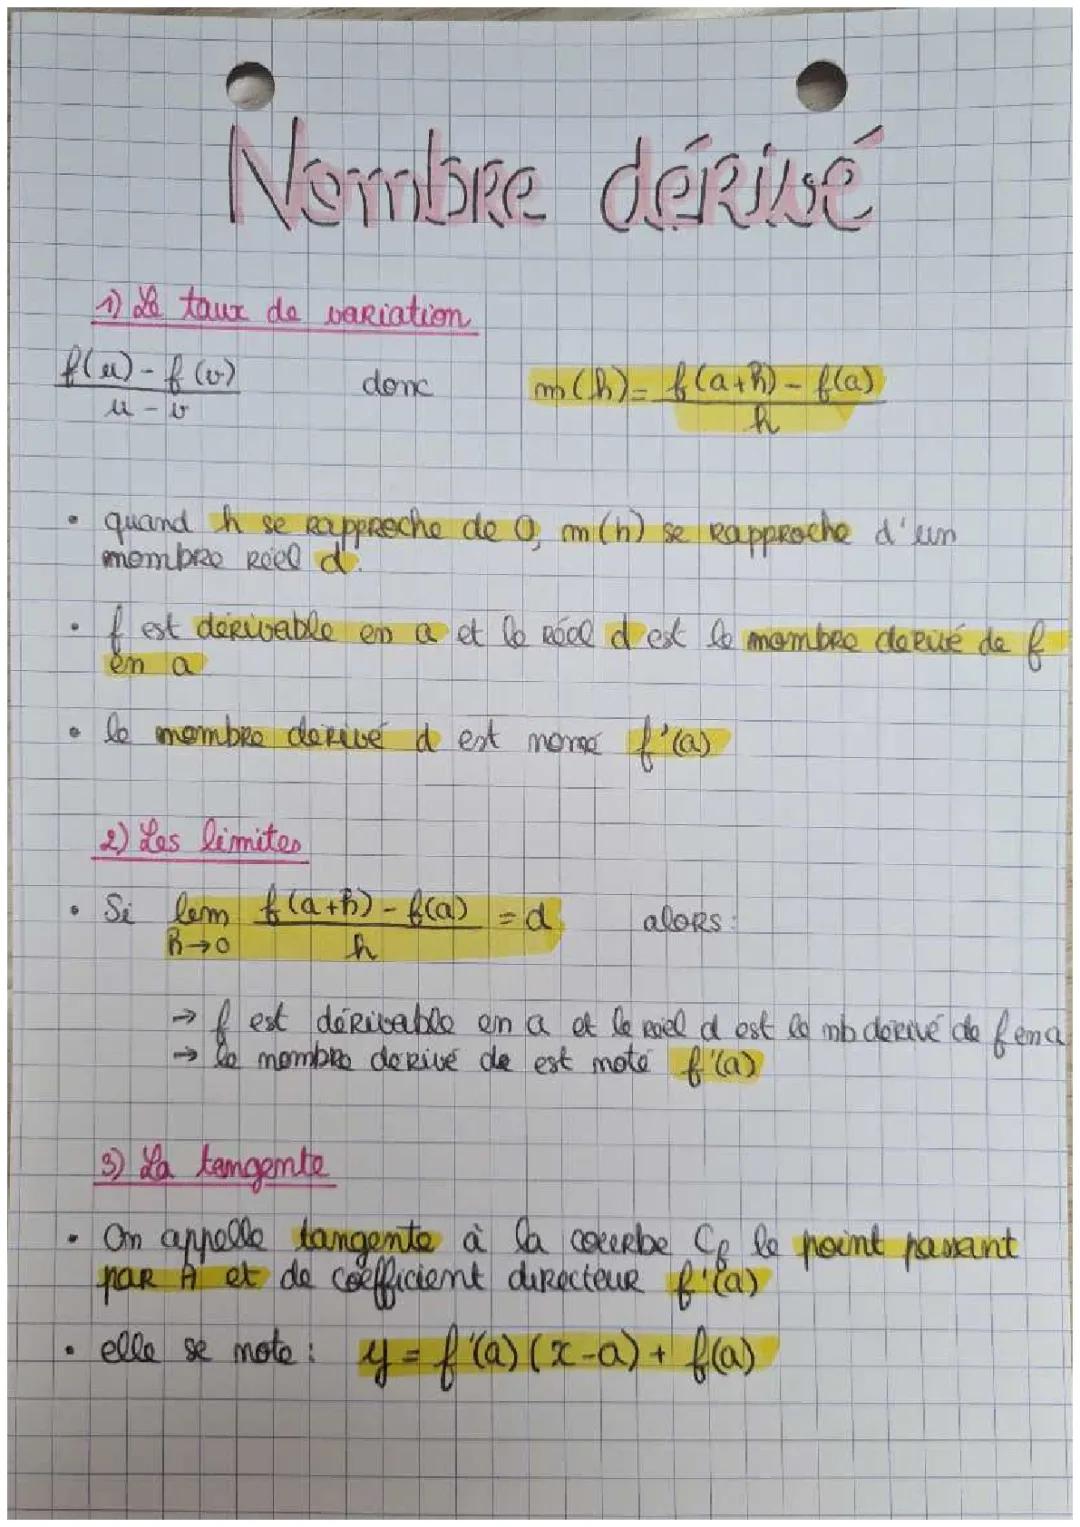 Nombre dérivé
1) Le taux de variation
f(u) - f(v) / u - v donc m(h) = f(a+h) - f(a) / h
• quand h se rapproche de 0, m(h) se rapproche d'un
nombre réel d.
• f est dérivable en a et le réel d est le nombre derivé de f
en a
• le nombre derivé d est nomé f'(a)
2) Les limites
• Si lim h→0 f(a+h) - f(a) / h = d alors :
→ f est dérivable en a et le réel d est le nb derivé de f en a
→ le nombre derivé de est noté f'(a)
3) La tangente
• On appelle tangente à la courbe Cf le point passant
par A et de coefficient directeur f'(a)
• elle se note : y = f'(a) (x-a) + f(a)